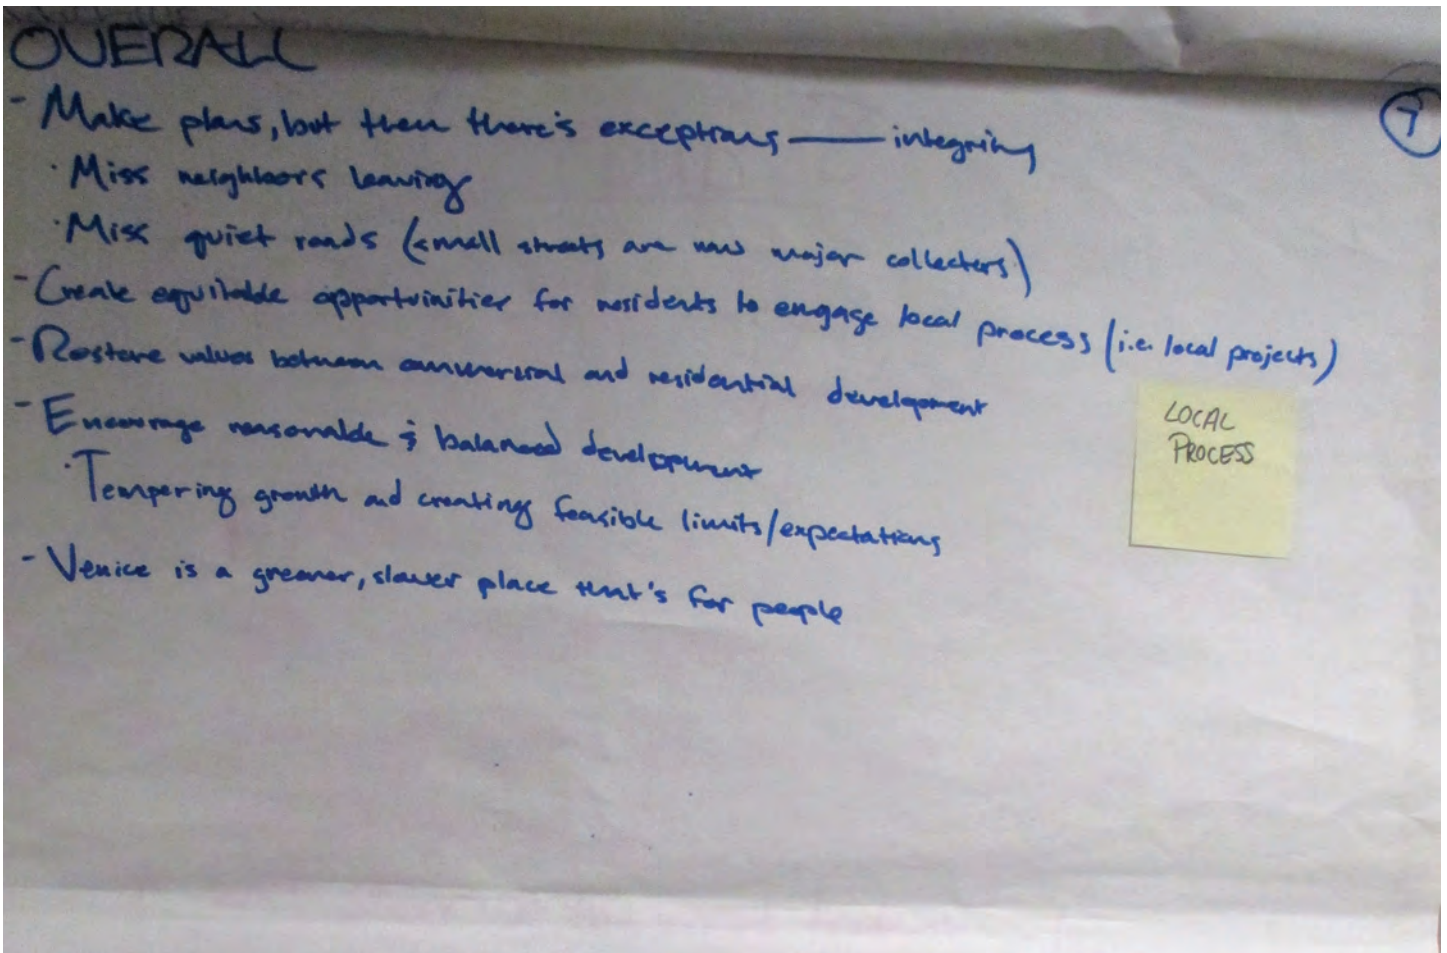 OVERALL
7
- Make plans, but then there's exceptions — integrity
· Miss neighbors leaving
· Miss quiet roads (small streets are now major collectors)
- Create equitable opportuinities for residents to engage local process (i.e. local projects)
- Restore values between commercial and residential development
LOCAL
PROCESS
- Encourage reasonable & balanced development
· Tempering growth and creating feasible limits/expectations
- Venice is a greener, slower place that's for people